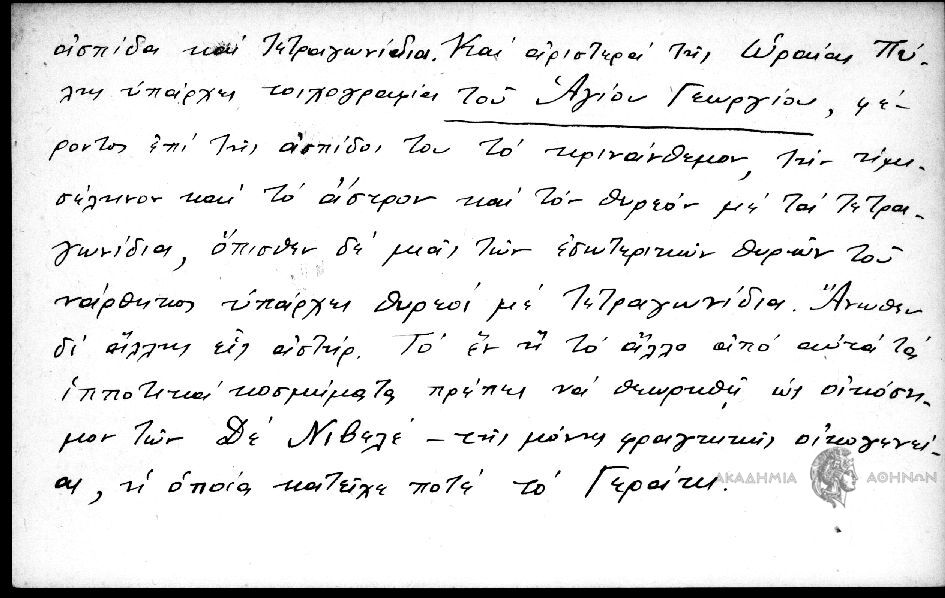 ἀσπίδα καί τετραγωνίδια. Καί ἀριστερά τῆς Ὡραίας Πύ-
λης ὑπάρχει τοιχογραφία τοῦ Ἁγίου Γεωργίου, φέ-
ροντος ἐπί τῆς ἀσπίδος του τό κρινάνθεμον, τήν ἡμι-
σέληνον καί τό ἄστρον καί τόν θυρεόν μέ τά τετρα-
γωνίδια, ὄπισθεν δέ μιᾶς τῶν ἐσωτερικῶν θυρῶν τοῦ
νάρθηκος ὑπάρχει θυρεοί μέ τετραγωνίδια. Ἄνωθεν
δέ ἄλλης εἷς ἀστήρ. Τό ἕν ἤ τό ἄλλο ἀπό αὐτά τά
ἱπποτικά κοσμήματα πρέπει νά θεωρηθῇ ὡς οἰκόση-
μον τῶν Δέ Νιβελέ – τῆς μόνης φραγκικῆς οἰκογενεί-
ας, ἡ ὁποία κατεῖχε ποτέ τό Γεράκι.
ΑΚΑΔΗΜΙΑ ΑΘΗΝΩΝ